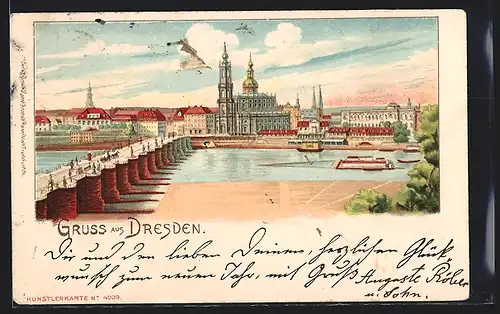 GRUSS AUS DRESDEN.
Dir und den lieben Deinen, herzlichen Glück
wunsch zum neuen Jahr, mit Gruß Auguste Röber
u. Sohn.
KÜNSTLERKARTE Nº 4009.